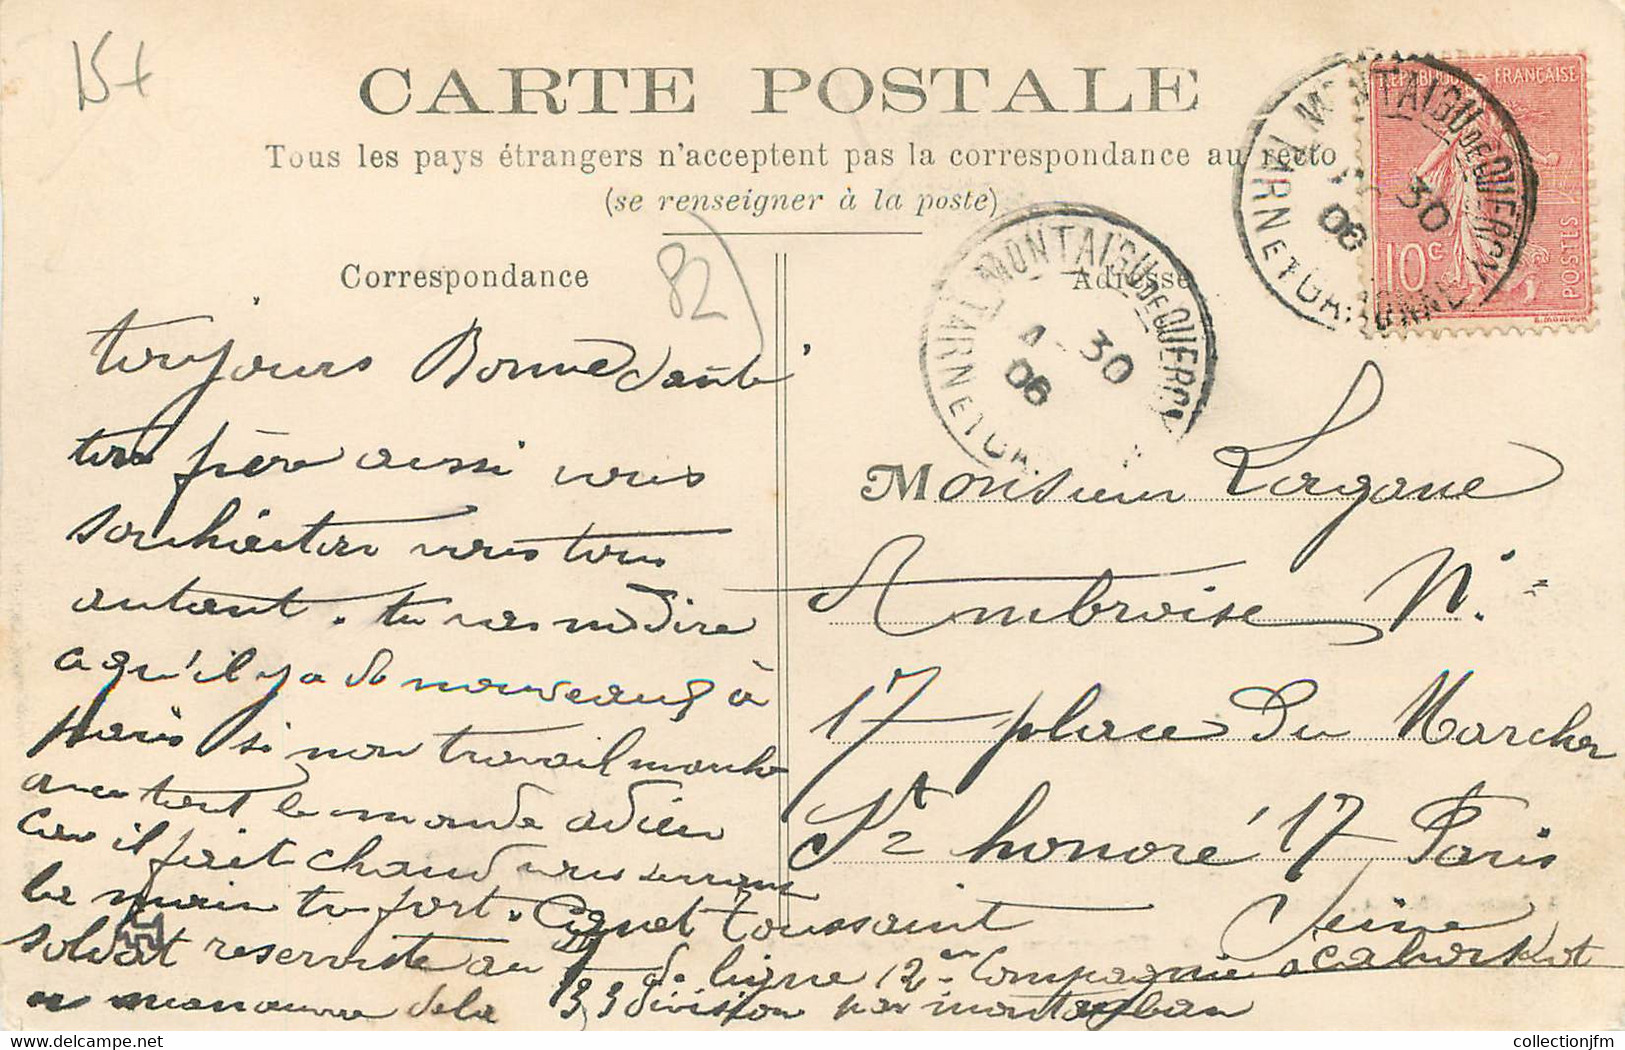 15+
CARTE POSTALE
Tous les pays étrangers n'acceptent pas la correspondance au recto
(se renseigner à la poste)
82
Correspondance
Adresse
MONTAIGU DE QUERCY
TARN ET GARONNE
30
06
MONTAIGU DE QUERCY
TARN ET GA
4 30
06
REPUBLIQUE FRANÇAISE
10c
POSTES
toujours Bonne Santé
ton père aussi vous
souhaiton vous tous
autant. tu vas me dire
a qu'il y a de nouveaux à
paris si non travail marche
avec tout le monde adieu
car il fait chaud vous serrant
la main tu fort. Cignet Toussaint
soldat reserviste au de ligne 12 em Compagnie a cahors Lot
en manoeuvre de la 33 division par montauban
Monsieur Lagane
Ambroise N.
17 place Du Marcher
St honoré 17 Paris
Seine
collectionjfm